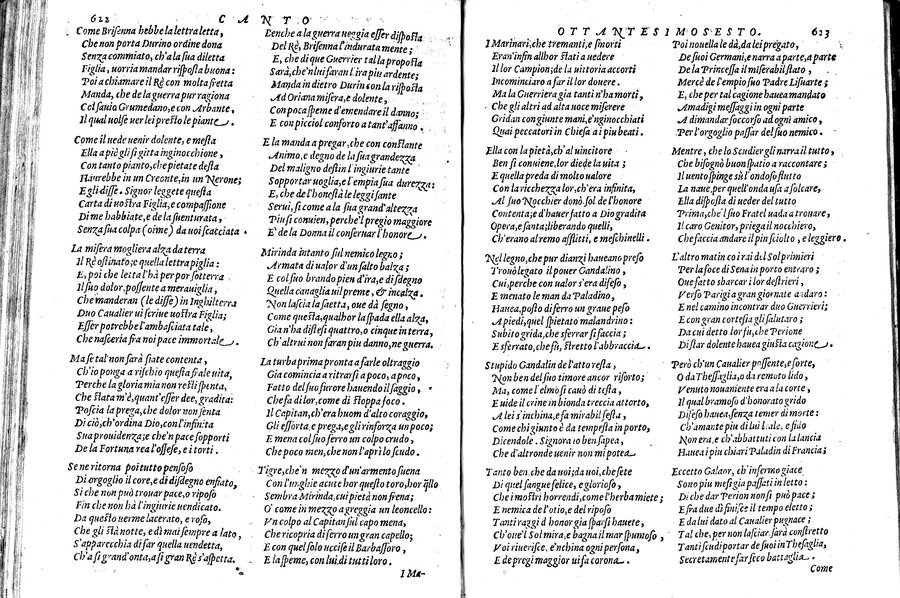 622 CANTO
Come Brisenna hebbe la lettra letta,
Che non porta Durino ordine dona
Senza commiato, ch'a la sua diletta
Figlia, uorria mandar risposta buona:
Poi a chiamare il Rè con molta fretta
Manda, che de la guerra pur ragiona
Col sauio Grumedano, e con Arbante,
Il qual uolse uer lei presto le piante.
Come il uede uenir dolente, e mesta
Ella a piè gli si gitta inginocchione,
Con tanto pianto, che pietate desta
Haurebbe in un Creonte, in un Nerone;
Egli disse. Signor leggete questa
Carta di uostra Figlia, e compassione
Di me habbiate, e de la suenturata,
Senza sua colpa (oime) da uoi scacciata.
La misera mogliera alza da terra
Il Rè ostinato; e quella lettra piglia:
E, poi che letta l'hà per por sotterra
Il suo dolor, possente a merauiglia,
Che manderan (le disse) in Inghilterra
Duo Caualier ui scriue uostra Figlia;
Esser potrebbe l'ambasciata tale,
Che nasceria fra noi pace immortale.
Ma se tal non sarà siate contenta,
Ch'io ponga a rischio questa frale uita,
Perche la gloria mia non resti spenta,
Che stata m'è, quant'esser dee, gradita:
Poscia la prega, che dolor non senta
Di ciò, ch'ordina Dio, con l'infinita
Sua prouidenza; e che'n pace sopporti
De la Fortuna real l'offese, e i torti.
Se ne ritorna poi tutto pensoso
Di orgoglio il core, e di disdegno enfiato,
Si che non può trouar pace, o riposo
Fin che non hà l'ingiurie uendicato.
Da questo uerme lacerato, e roso,
Che gli stà notte, e dì mai sempre a lato,
S'apparecchia di far quella uendetta,
Ch'a sì grand'onta, a sì gran Rè s'aspetta.
Benche a la guerra ueggia esser disposta
Del Rè, Brisenna l'indurata mente;
E, che di que Guerrier tal la proposta
Sarà, che'n lui saran l'ira piu ardente;
Manda in dietro Durin con la risposta
Ad Oriana misera, e dolente,
Con poca speme d'emendare il danno;
E con picciol conforto a tant'affanno.
E la manda a pregar, che con constante
Animo, e degno de la sua grandezza
Del maligno destin l'ingiurie tante
Sopportar uoglia, e l'empia sua durezza:
E, che de l'honestà le leggi sante
Serui, sì come a la sua grand'altezza
Piu si conuien, perche'l pregio maggiore
E' de la Donna il conseruar l'honore.
Mirinda intanto sul nemico legno;
Armata di ualor d'un salto balza;
E col suo brando pien d'ira, e disdegno
Quella canaglia uil preme, & incalza.
Non lascia la saetta, oue dà segno,
Come questa, qualhor la spada ella alza,
Gia n'ha distesi quattro, o cinque in terra,
Ch'altrui non faran piu danno, ne guerra.
La turba prima pronta a farle oltraggio
Gia comincia a ritrarsi a poco, a poco,
Fatto del suo furore hauendo il saggio,
Che fa di lor, come di stoppa foco.
Il Capitan, ch'era huom d'alto coraggio,
Gli essorta, e prega, e gli rinforza un poco;
E mena col suo ferro un colpo crudo,
Che poco men, che non l'aprì lo scudo.
Tigre, che'n mezzo d'un'armento suena
Con l'unghie acute hor questo toro, hor q̃llo
Sembra Mirinda, cui pietà non frena;
O' come in mezzo a greggia un leoncello:
Vn colpo al Capitan sul capo mena,
Che ricopria di ferro un gran capello;
E con quel solo uccise il Barbassoro,
E la speme, con lui, di tutti loro.
I Ma-
OTTANTESIMOSESTO. 623
I Marinari, che tremanti, e smorti
Eran'infin allhor stati a uedere
Il lor Campion; de la uittoria accorti
Incominciaro a far il lor douere.
Ma la Guerriera gia tanti n'ha morti,
Che gli altri ad alta uoce miserere
Gridan con giunte mani, e'nginocchiati
Quai peccatori in Chiesa a i piu beati.
Ella con la pietà, ch'al uincitore
Ben si conuiene, lor diede la uita;
E quella preda di molto ualore
Con la ricchezza lor, ch'era infinita,
Al suo Nocchier donò sol de l'honore
Contenta; e d'hauer fatto a Dio gradita
Opera, e santa; liberando quelli,
Ch'erano al remo afflitti, e meschinelli.
Nel legno, che pur dianzi haueano preso
Trouò legato il pouer Gandalino,
Cui, perche con ualor s'era difeso,
E menato le man da Paladino,
Hauea, posto di ferro un graue peso
A piedi, quel spietato malandrino:
Subito grida, che sferrar si faccia;
E sferrato, che fù, stretto l'abbraccia.
Stupido Gandalin de l'atto resta,
Non ben del suo timore ancor risorto;
Ma, come l'elmo si cauò di testa,
E uide il crine in bionda treccia attorto,
A lei s'inchina, e fa mirabil festa,
Come chi giunto è da tempesta in porto,
Dicendole. Signora io ben sapea,
Che d'altronde uenir non mi potea
Tanto ben, che da uoi; da uoi, che sete
Di quel sangue felice, e glorioso,
Che i mostri horrendi, come l'herba miete;
E nemica de l'otio, e del riposo
Tanti raggi d'honor gia sparsi hauete,
Ch'oue'l Sol mira, e bagna il mar spumoso,
Voi riuerisce, e'nchina ogni persona,
E de pregi maggior ui fa corona.
Poi nouella le dà, da lei pregato,
De suoi Germani, e narra a parte, a parte
De la Princessa il miserabil stato,
Mercè de l'empio suo Padre Lisuarte;
E, che per tal cagione hauea mandato
Amadigi messaggi in ogni parte
A dimandar soccorso ad ogni amico,
Per l'orgoglio passar del suo nemico.
Mentre, che lo Scudier gli narra il tutto,
Che bisognò buon spatio a raccontare;
Il uento spinge sù l'ondoso flutto
La naue, per quell'onda usa a solcare,
Ella disposta di ueder del tutto
Prima, che'l suo Fratel uada a trouare,
Il caro Genitor, priega il nocchiero,
Che faccia andare il pin sciolto, e leggiero.
L'altro matin co i rai del Sol primieri
Per la foce di Sena in porto entraro;
Oue fatto sbarcar i lor destrieri,
Verso Parigi a gran giornate andaro:
E nel camino incontrar duo Guerrieri;
E con gran cortesia gli salutaro;
Da cui detto lor fu, che Perione
Di star dolente hauea giusta cagione.
Però ch'un Caualier possente, e forte,
O da Thessaglia, o da remoto lido,
Venuto nouamente era a la corte,
Il qual bramoso d'honorato grido
Difeso hauea, senza temer di morte:
Ch'amante piu di lui leale, e fido
Non era, e ch'abbattuti con la lancia
Hauea i piu chiari Paladin di Francia;
Eccetto Galaor, ch'infermo giace
Sono piu mesi gia passati in letto:
Di che dar Perion non si può pace;
E fra due dì finisce il tempo eletto;
E da lui dato al Caualier pugnace;
Tal che, per non lasciar sarà constretto
Tanti scudi portar de suoi in Thessaglia,
Secretamente far seco battaglia.
Come